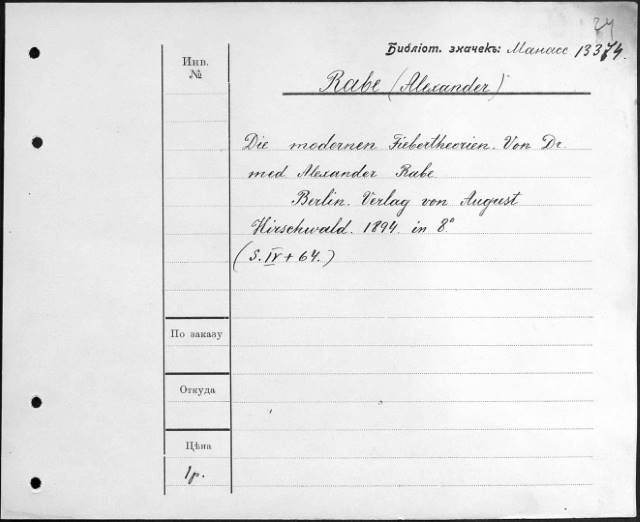 24
Библіот. значекъ: Манасс. 13374.
Инв.
№
Rabe (Alexander)
Die modernen Fiebertheorien. Von Dr.
med Alexander Rabe
Berlin. Verlag von August
Hirschwald. 1894. in 8°
(S. IV + 64.)
По заказу
Откуда
Цѣна
1р.